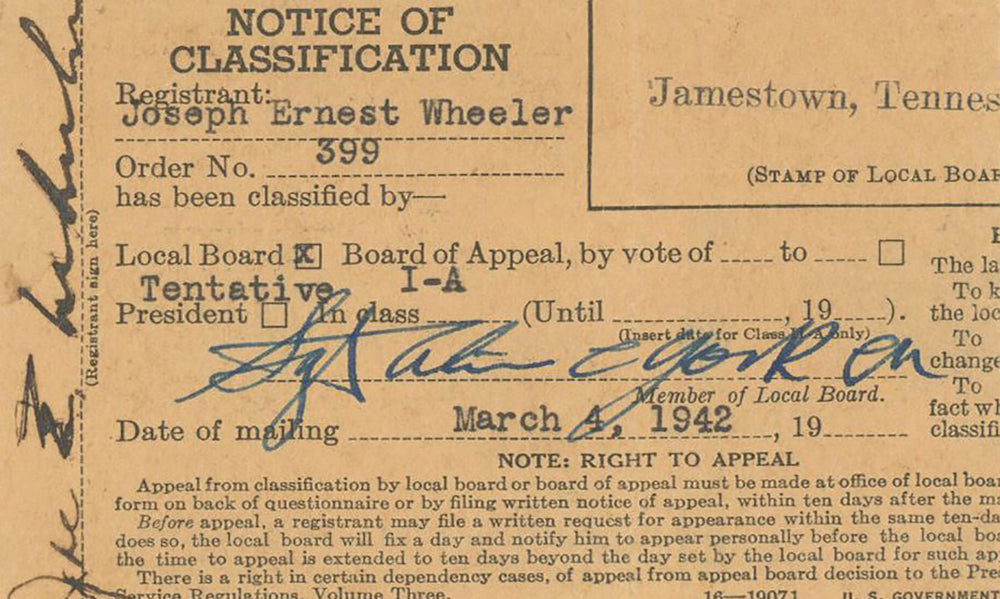 NOTICE OF
CLASSIFICATION
Registrant:
Joseph Ernest Wheeler
Order No. 399
has been classified by—
Local Board X Board of Appeal, by vote of ..... to ..... □
Tentative I-A
President □ In class .......... (Until ...................., 19......).
(Insert date for Class II-A only)
Sgt Alvin C York
Member of Local Board.
Date of mailing March 4, 1942, 19........
NOTE: RIGHT TO APPEAL
Appeal from classification by local board or board of appeal must be made at office of local boar
form on back of questionnaire or by filing written notice of appeal, within ten days after the m
Before appeal, a registrant may file a written request for appearance within the same ten-da
does so, the local board will fix a day and notify him to appear personally before the local boa
the time to appeal is extended to ten days beyond the day set by the local board for such ap
There is a right in certain dependency cases, of appeal from appeal board decision to the Pre
Service Regulations, Volume Three.
16—19071 U. S. GOVERNMENT
Jamestown, Tennes
(STAMP OF LOCAL BOAR
The la
To k
the loc
To
change
To
fact wh
classifi
(Registrant sign here)